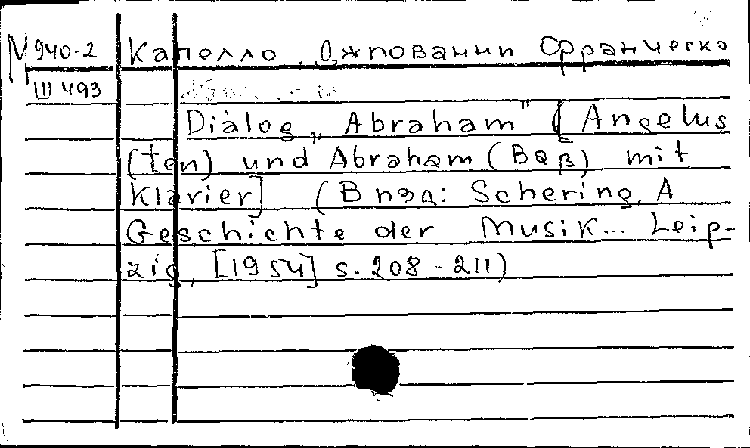 М 940-2 Капелло, Джованни Франческо
Ш 493
Dialog „Abraham" [Angelus
(ten) und Abraham (Baβ) mit
Klavier] (В изд: Schering, A
Geschichte der Musik... Leip-
zig, [1954] s. 208-211)